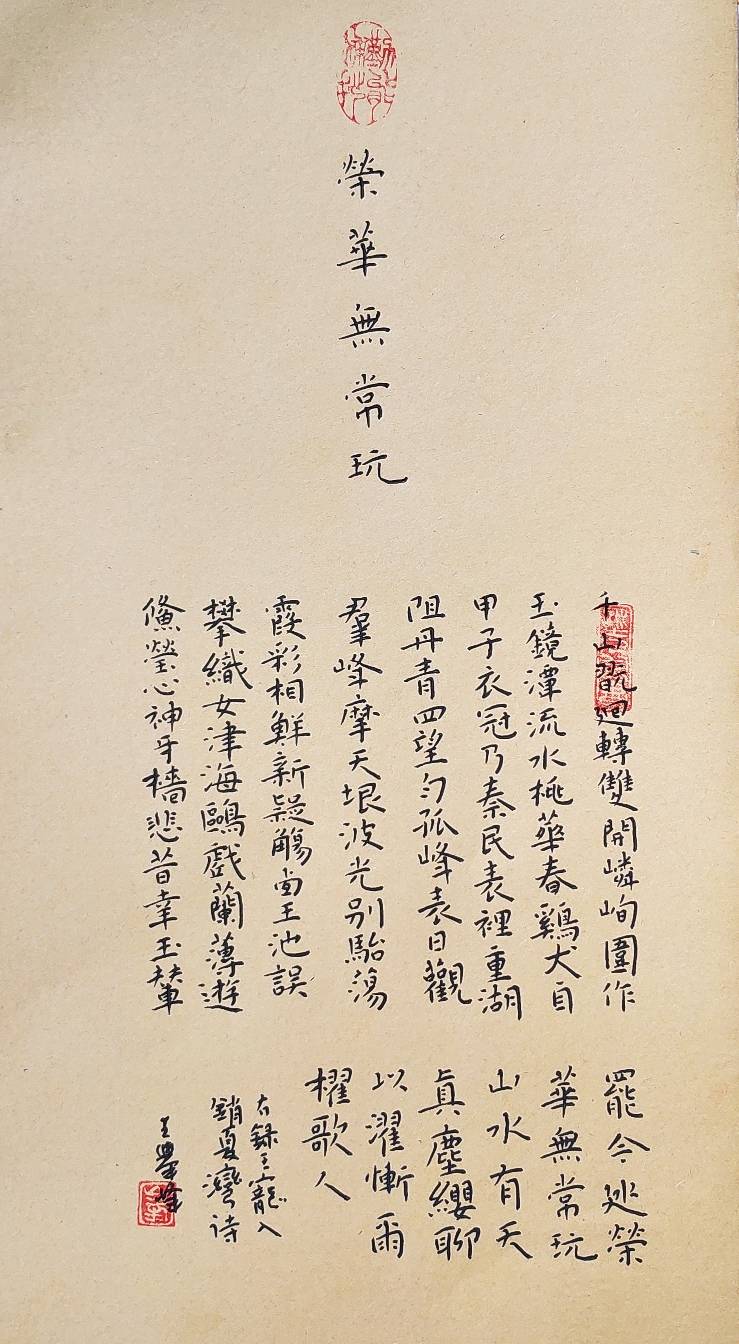 榮華無常玩
千山翫迴轉雙開嶙峋圍作
玉鏡潭流水桃華春鷄犬自
甲子衣冠乃秦民表裡重湖
阻丹青四望勻孤峰表日觀
羣峰摩天垠波光別駘蕩
霞彩相鮮新疑觴王池誤
攀織女津海鷗戲蘭薄遊
鯈瑩心神牙檣悲昔幸玉輦
罷今巡榮
華無常玩
山水有天
眞塵纓聊
以濯慚爾
櫂歌人
右錄王寵入
銷夏灣诗